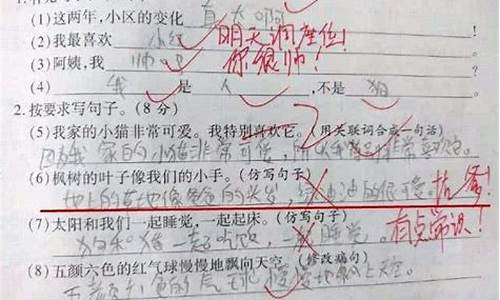 (1)这两年,小区的变化 真大啊
(2)我最喜欢 小红 明天调座位!
(3)阿姨,我 帅吧 你很帅!
(4) 我 是 人 ,不是 狗
2.按要求写句子。(8分)
(5)我家的小猫非常可爱。我特别喜欢它。(用关联词合成一句话)
因为我家的小猫非常可爱,所以我非常喜欢它。
(6)枫树的叶子像我们的小手。(仿写句子)
地上的草地像爸爸的头发,绿油油的很可爱。抗议!
(7)太阳和我们一起睡觉,一起起床。(仿写句子)
一起吃饭,一起睡觉。有点常识!
(8)五颜六色的红气球慢慢地飘向天空。(修改病句)
五颜六色的气球慢慢地飘上天空。